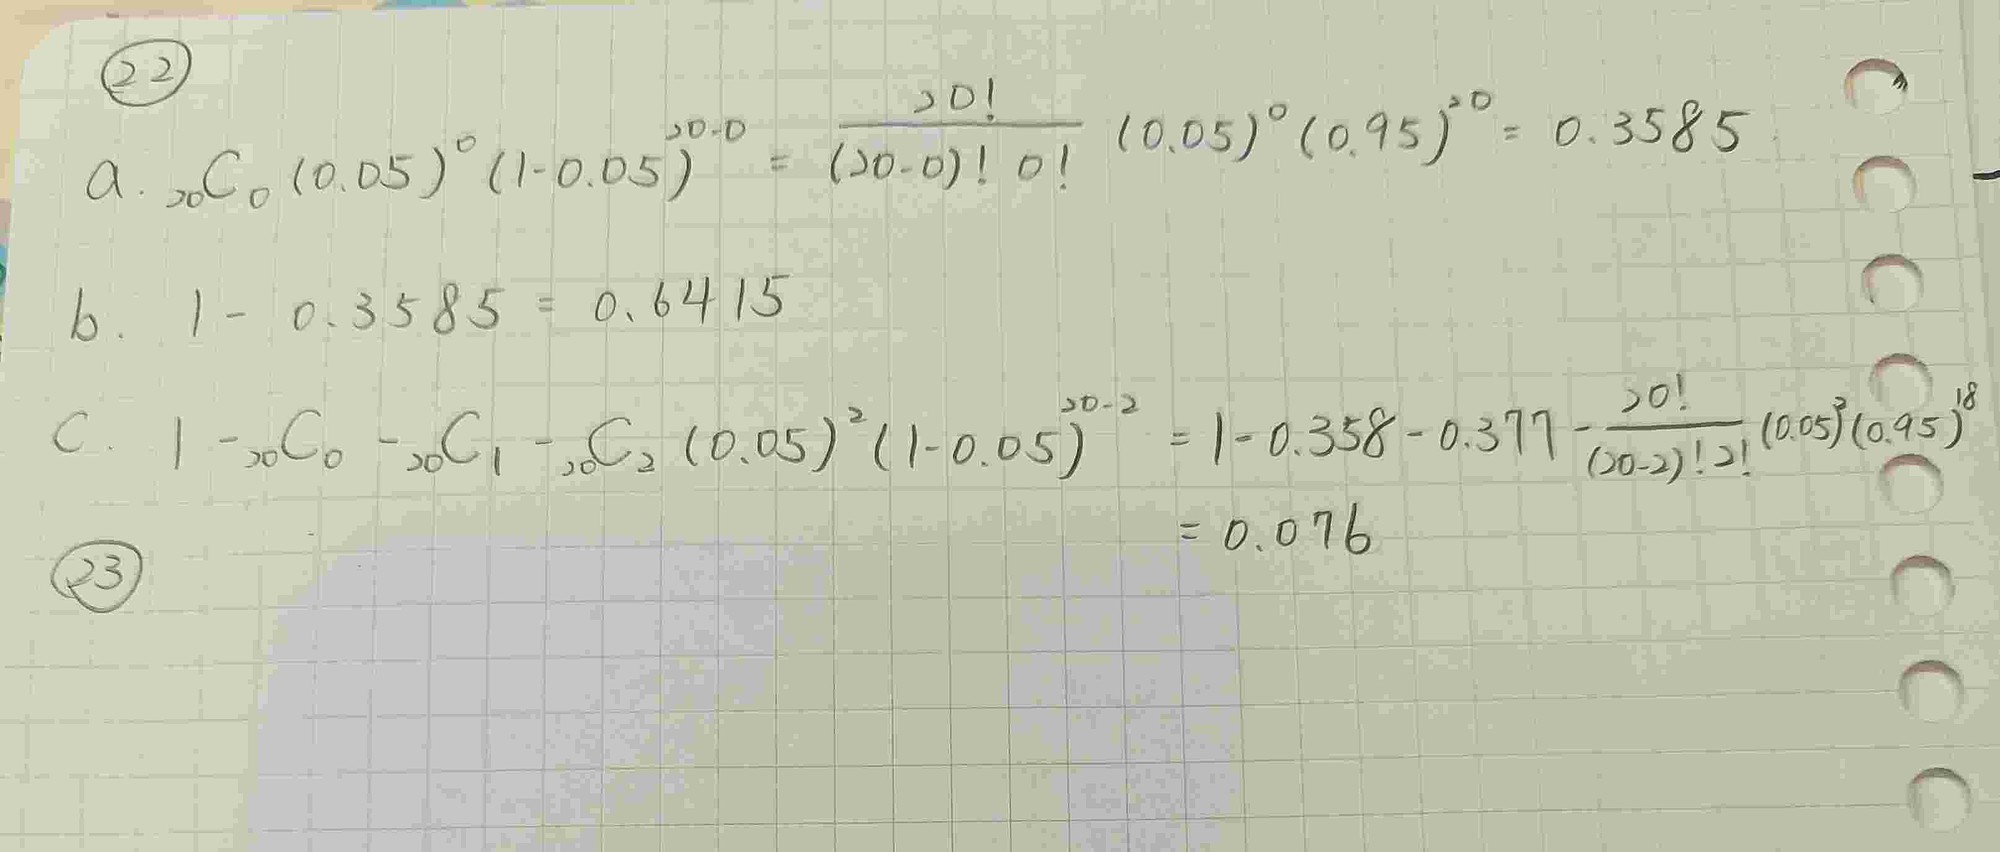 22
a. ₂₀C₀ (0.05)⁰ (1-0.05)²⁰⁻⁰ = 20! / (20-0)! 0! (0.05)⁰ (0.95)²⁰ = 0.3585
b. 1 - 0.3585 = 0.6415
C. 1 - ₂₀C₀ - ₂₀C₁ - ₂₀C₂ (0.05)² (1-0.05)²⁰⁻² = 1 - 0.358 - 0.377 - 20! / (20-2)! 2! (0.05)² (0.95)¹⁸
= 0.076
23